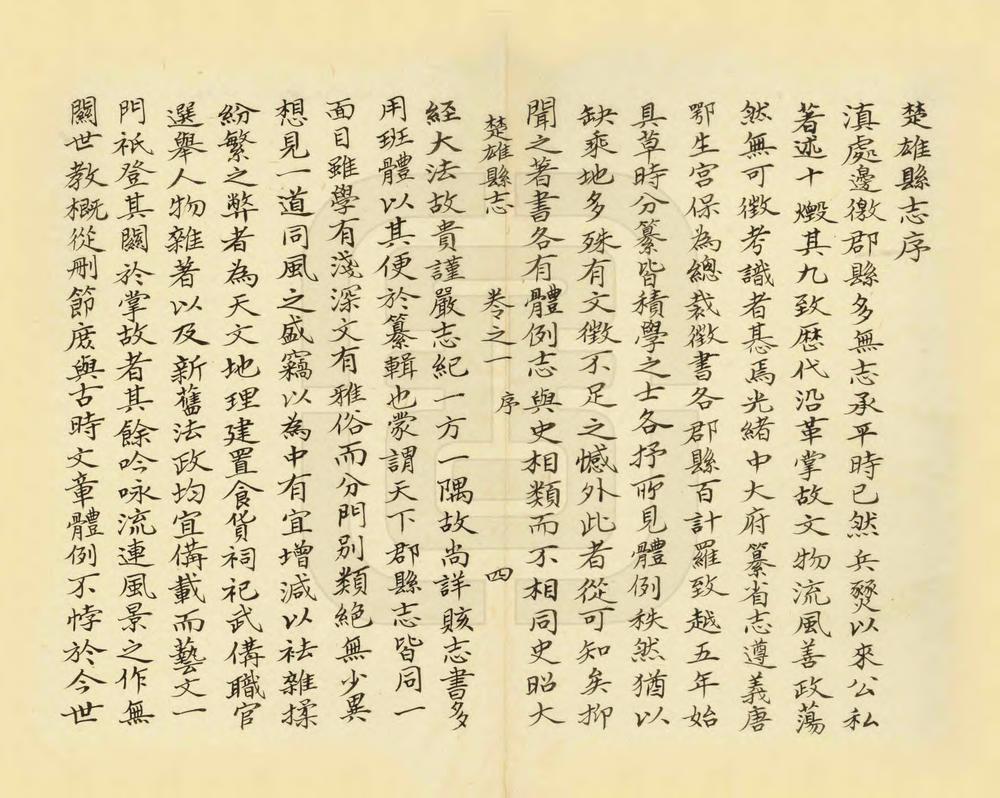 楚雄縣志序
滇處邊徼郡縣多無志承平時已然兵燹以來公私
著述十燬其九致歷代沿革掌故文物流風善政蕩
然無可徵考識者惎焉光緒中大府纂省志遵義唐
鄂生宮保為總裁徵書各郡縣百計羅致越五年始
具草時分纂皆積學之士各抒所見體例秩然猶以
缺乘地多殊有文徵不足之憾外此者從可知矣抑
聞之著書各有體例志與史相類而不相同史昭大
楚雄縣志 卷之一 序 四
經大法故貴謹嚴志紀一方一隅故尚詳賅志書多
用班體以其便於纂輯也蒙謂天下郡縣志皆同一
面目雖學有淺深文有雅俗而分門別類絕無少異
想見一道同風之盛竊以為中有宜增減以祛雜揉
紛繁之弊者為天文地理建置食貨祠祀武備職官
選舉人物雜著以及新舊法政均宜備載而藝文一
門祇登其關於掌故者其餘吟咏流連風景之作無
關世教概從刪節庶與古時文章體例不悖於今世